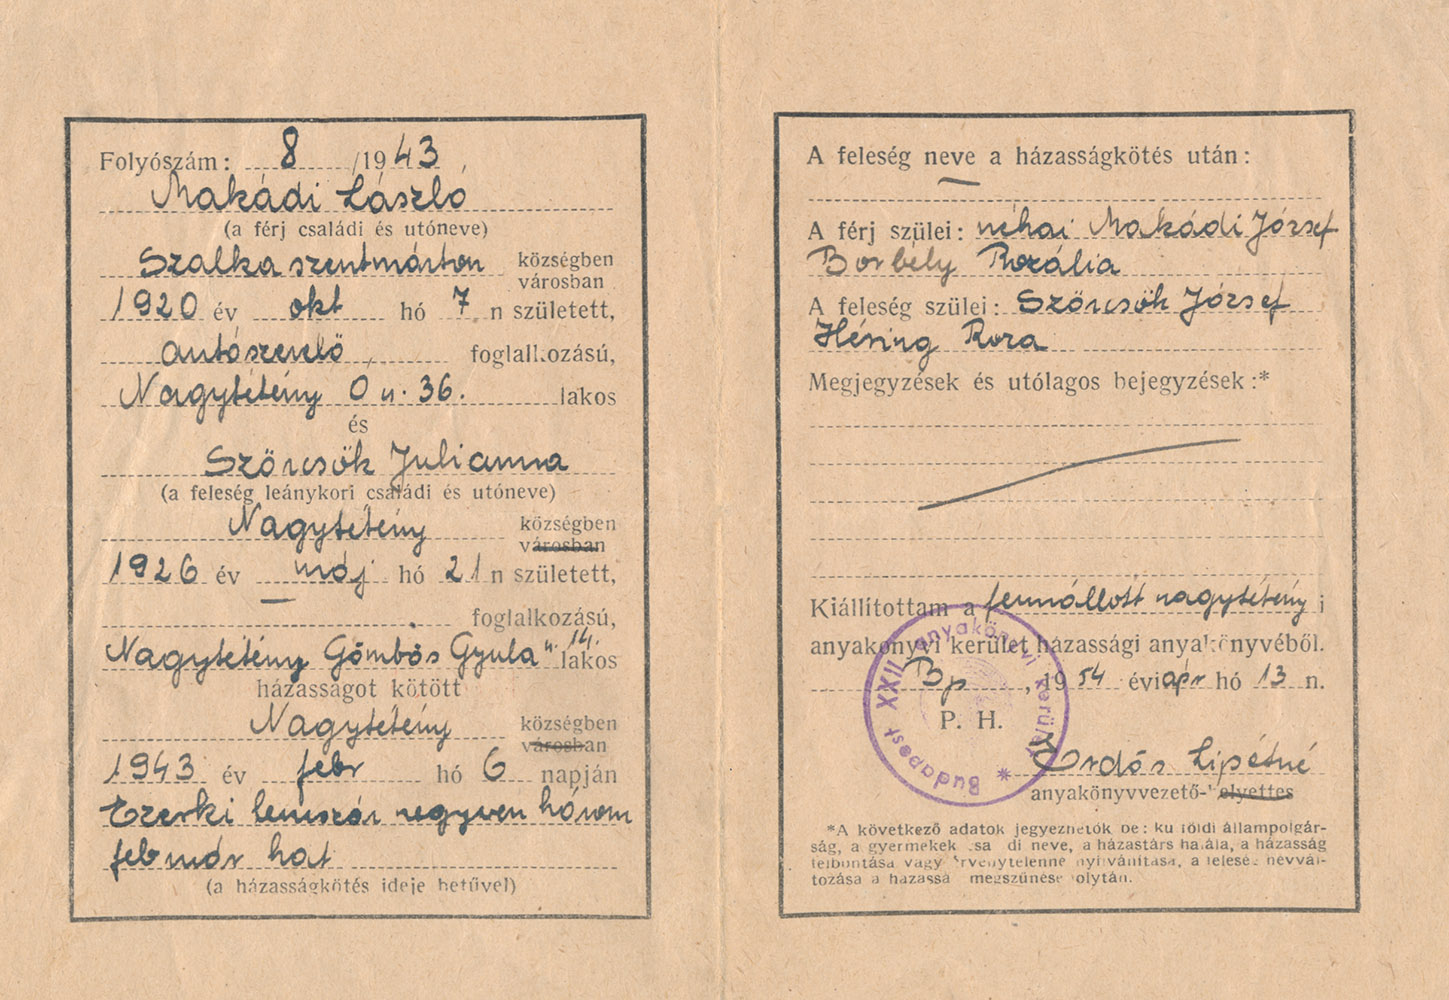 Folyószám: 8 /1943
Makádi László
(a férj családi és utóneve)
Szalkaszentmárton községben
városban
1920 év okt hó 7 n született,
autószerelő foglalkozású,
Nagytétény Ó u. 36. lakos
és
Szörcsök Julianna
(a feleség leánykori családi és utóneve)
Nagytétény községben
városban
1926 év máj hó 21 n született,
— foglalkozású,
Nagytétény Gömbös Gyula u. 14. lakos
házasságot kötött
Nagytétény községben
városban
1943 év febr hó 6 napján
Ezerkilencszáznegyvenhárom
február hat
(a házasságkötés ideje betűvel)
A feleség neve a házasságkötés után:
—
A férj szülei: néhai Makádi József
Borbély Rozália
A feleség szülei: Szörcsök József
Héring Roza
Megjegyzések és utólagos bejegyzések:*
Kiállítottam a fennállott nagytétényi
anyakönyvi kerület házassági anyakönyvéből.
Bp, 1954 évi ápr hó 13 n.
P. H.
Budapest XXII. anyakönyvi kerület *
Ordós Lipótné
anyakönyvvezető-helyettes
*A következő adatok jegyezhetők be: külföldi állampolgár-
ság, a gyermekek családi neve, a házastárs halála, a házasság
felbontása vagy érvénytelenné nyilvánítása, a feleség névvál-
tozása a házasság megszűnése folytán.